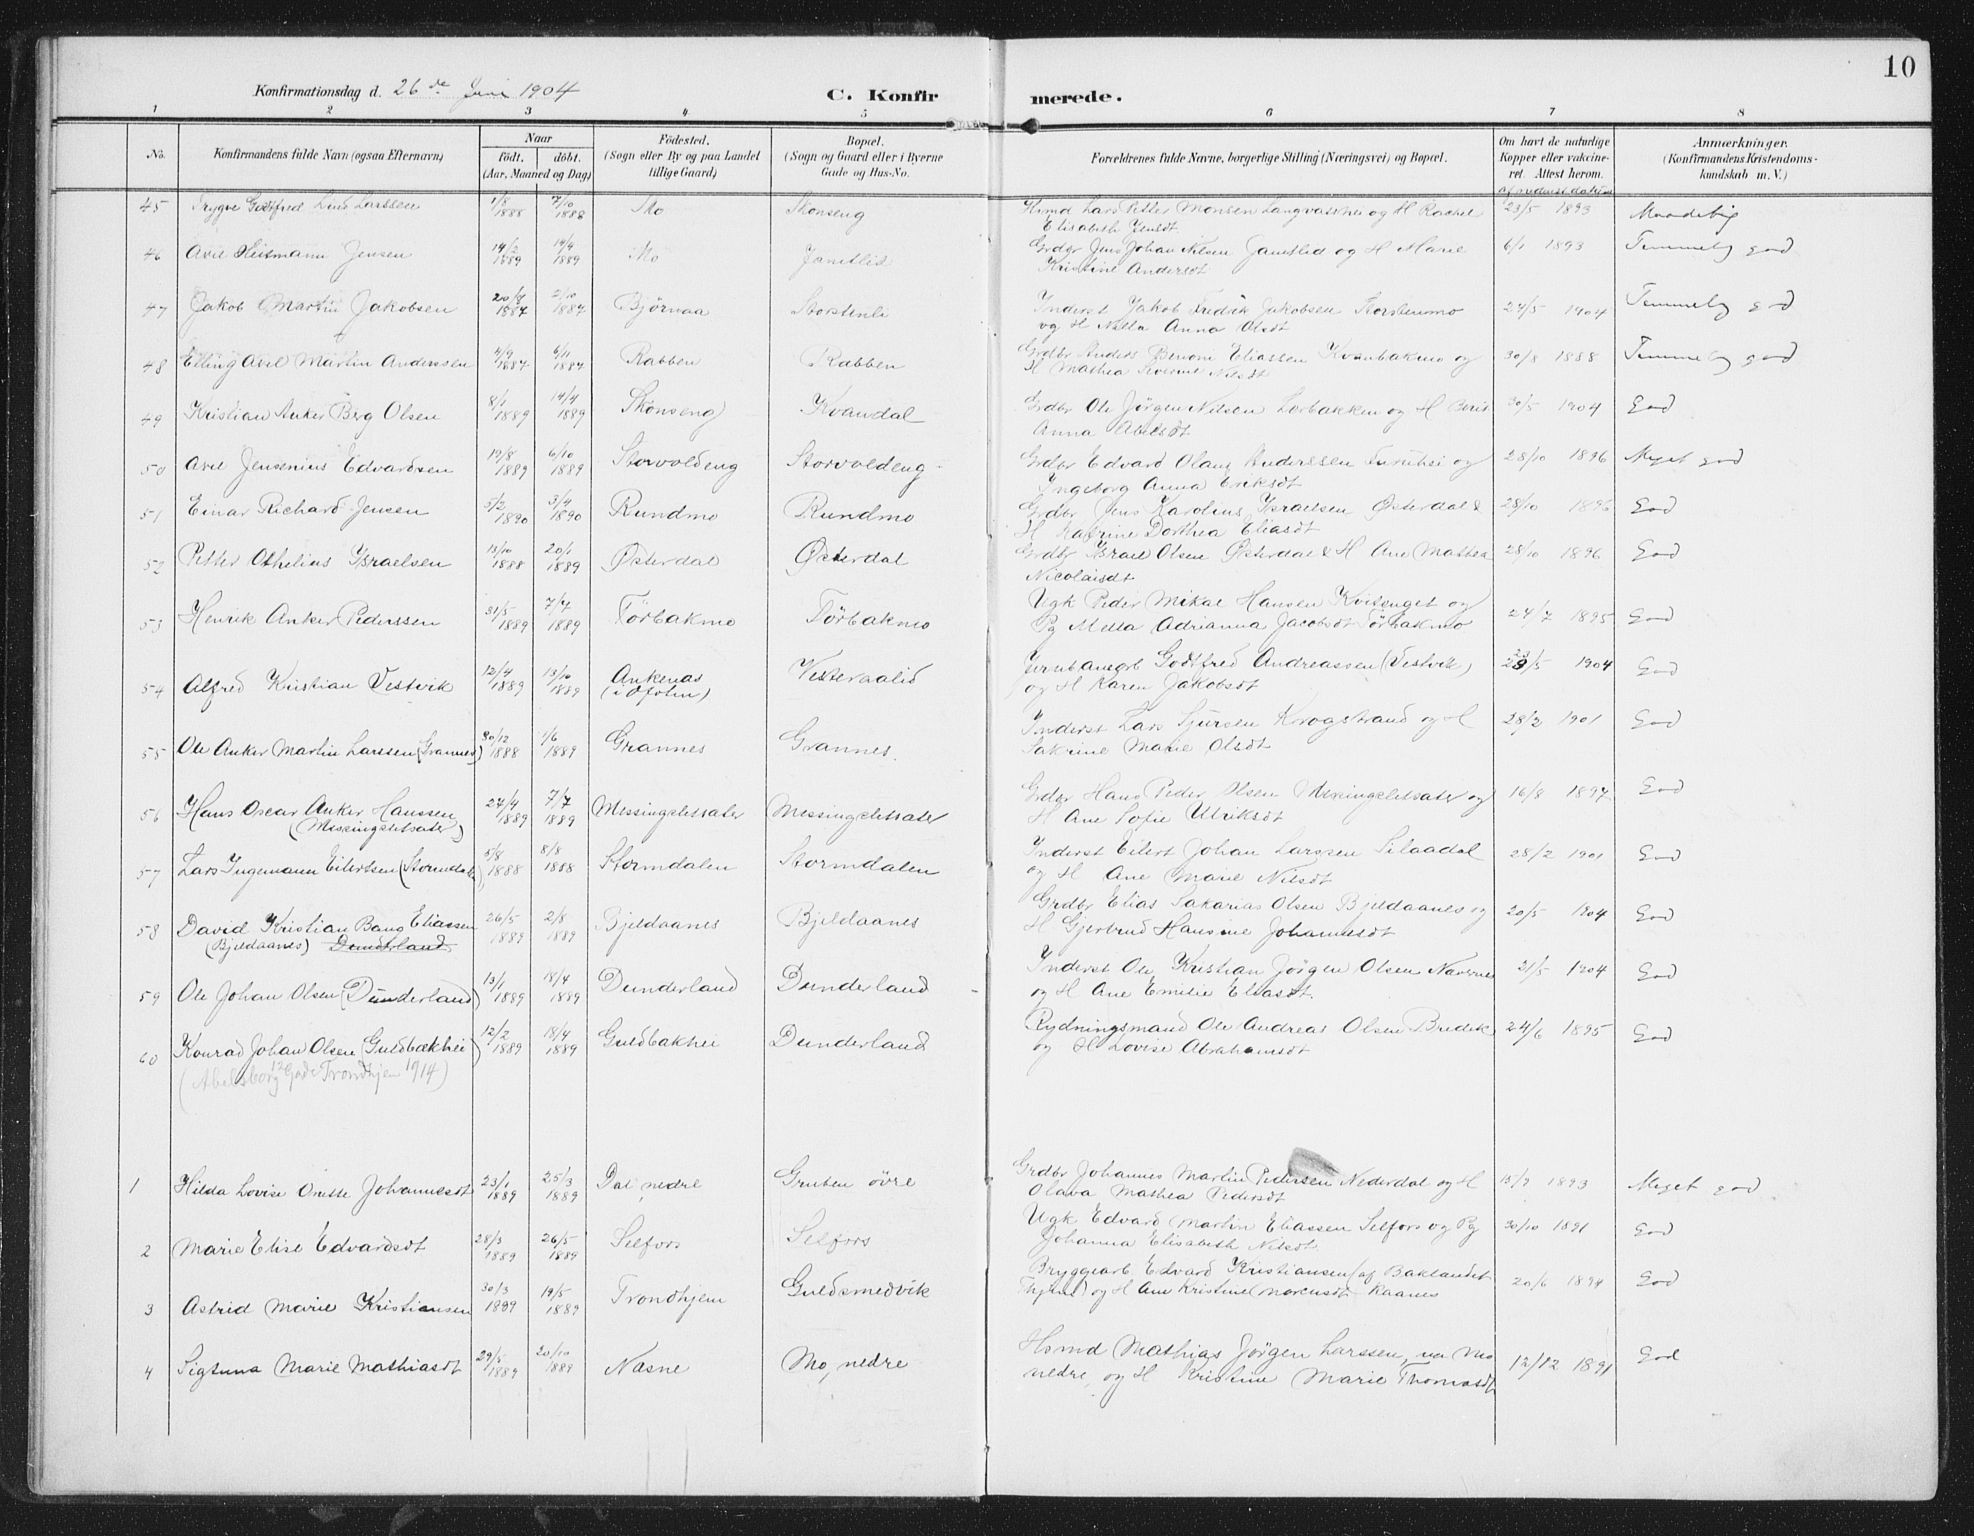 10
Konfirmationsdag d. 26de Juni 1904
C. Konfirmerede.
1 2 3 4 5 6 7 8
No. | Konfirmandens fulde Navn (ogsaa Efternavn) | Naar født. døbt. (Aar, Maaned og Dag) | Födested. (Sogn eller By og paa Landet tillige Gaard) | Bopæl. (Sogn og Gaard eller i Byerne Gade og Hus-No. | Forældrenes fulde Navne, borgerlige Stilling (Næringsvei) og Bopæl. | Om havt de naturlige Kopper eller vaccineret. Attest herom. | Anmærkninger. (Konfirmandens Kristendomskundskab m. V.)
45 Trygve Godtfred Lind Larssen 1/8 1888 7/10 1888 Mo Skonseng Lars Petter Monsen Langvasshei og H Rachel 23/5 1893 Maadelig
Elisabeth
46 Axel Jensen 14/2 1889 14/4 1889 Mo Jamtlid Grdbr Jens Johan Nilsen Jamtlid og H Marie 6/1 1893 Temmelig god
Kristine Andersdt
47 Jakob Martin Jakobsen 20/8 1887 2/10 1887 Bjørnaa Storstenli Inderst Jakob Fredrik Jakobsen Storstenmo 24/5 1904 Temmelig god
og H Nella Anna Olsdt
48 Elling Axel Martin Anderssen 4/9 1887 6/11 1887 Rabben Rabben Grdbr Anders Benoni Eliassen Kvanbakmo og 30/8 1888 Temmelig god
H Mathea Nilsdt
49 Kristian Anker Berg Olsen 8/1 1889 14/4 1889 Skonseng Kvandal Grdbr Ole Jørgen Nilsen Lorbakken og H Berit 30/5 1904 God
Anna Abelsdt
50 Axel Jensenius Edvardsen 19/8 1889 6/10 1889 Storvoldeng Storvoldeng Grdbr Edvard Olaus Anderssen Furuhei og 28/10 1896 Meget god
Ingeborg Anna Eriksdt
51 Einar Richard Jensen 5/2 1890 3/4 1890 Rundmo Rundmo Grdbr Jens Karolius Israelsen Østerdal & 28/10 1896 God
H Katrine Dorthea Eliasdt
52 Petter Othelius Israelsen 13/10 1888 20/1 1889 Østerdal Østerdal Grdbr Israel Olsen Østerdal & H Ane Mathea 28/10 1896 God
Nicolaisdt
53 Henrik Anker Pederssen 31/5 1889 7/7 1889 Tørbakmo Tørbakmo Ugk Peder Mikal Hansen Kvitenget og 24/7 1895 God
Pg Metta Adrianna Jacobsdt Tørbakmo
54 Alfred Kristian Vestvik 12/4 1889 13/10 1889 Ankenas (i Ofoten) Vesteraalid Jernbanearb Godtfred Andreassen (Vestvik) 23/5 1904 God
og H Karen Jakobsdt
55 Ole Anker Martin Larssen (Grannes) 30/12 1888 1/6 1889 Grannes Grannes Inderst Lars Sjursen Krogstrand og H 28/2 1901 God
Sakrine Marie Olsdt
56 Hans Oscar Anker Hanssen 27/4 1889 7/7 1889 Messingsletsater Messingsletsater Grdbr Hans Peder Olsen Messingsletsater og 16/8 1897 God
(Messingsletsater) H Ane Sofie Ulriksdt
57 Lars Ingemann Eilertsen (Stormdal) 5/8 1888 8/8 1888 Stormdalen Stormdalen Inderst Eilert Johan Larssen Silaadal 28/2 1901 God
og H Ane Marie Nilsdt
58 David Kristian Bang Eliassen 26/5 1889 2/8 1889 Bjeldaanes Bjeldaanes Grdbr Elias Sakarias Olsen Bjeldaanes og 20/5 1904 God
(Bjeldaanes) Dunderland H Gjertrud Hansine Johannesdt
59 Ole Johan Olsen (Dunderland) 13/1 1889 18/4 1889 Dunderland Dunderland Inderst Ole Kristian Jørgen Olsen Naverne 21/5 1904 God
og H Ane Emilie Eliasdt.
60 Konrad Johan Olsen (Guldbækhei) 12/2 1889 18/4 1889 Guldbakhei Dunderland Rydningsmand Ole Andreas Olsen Bredek 24/6 1895 God
(Abelsborg Gade 12 Trondhjem 1914) og H Lovise Abrahamsdt
1 Hilda Lovise Orette Johannesdt 23/1 1889 25/3 1889 Dal nedre Gruben övre Grdbr Johannes Martin Pedersen Nederdal og H 15/9 1893 Meget god
Olava Mathea Pedersdt
2 Marie Elise Edvardsdt 28/3 1889 26/5 1889 Selfors Selfors Ugk Edvard Martin Eliassen Selfors og Pg 30/10 1891 God
Johanna Elisabeth Nilsdt
3 Astrid Marie Kristiansen 30/3 1889 19/5 1889 Trondhjem Guldsmedvik Bryggearb Edvard Kristiansen (af Baklandet 20/6 1894 God
Thjem) og H Ane Kristine Raanes
4 Sigtuna Marie Mathiasdt 29/5 1889 20/10 1889 Nasne Mo, nedre Hsmd Mathias Jørgen Larssen, Mo 12/12 1891 God
nedre, og H Kristine Marie Thomasdt